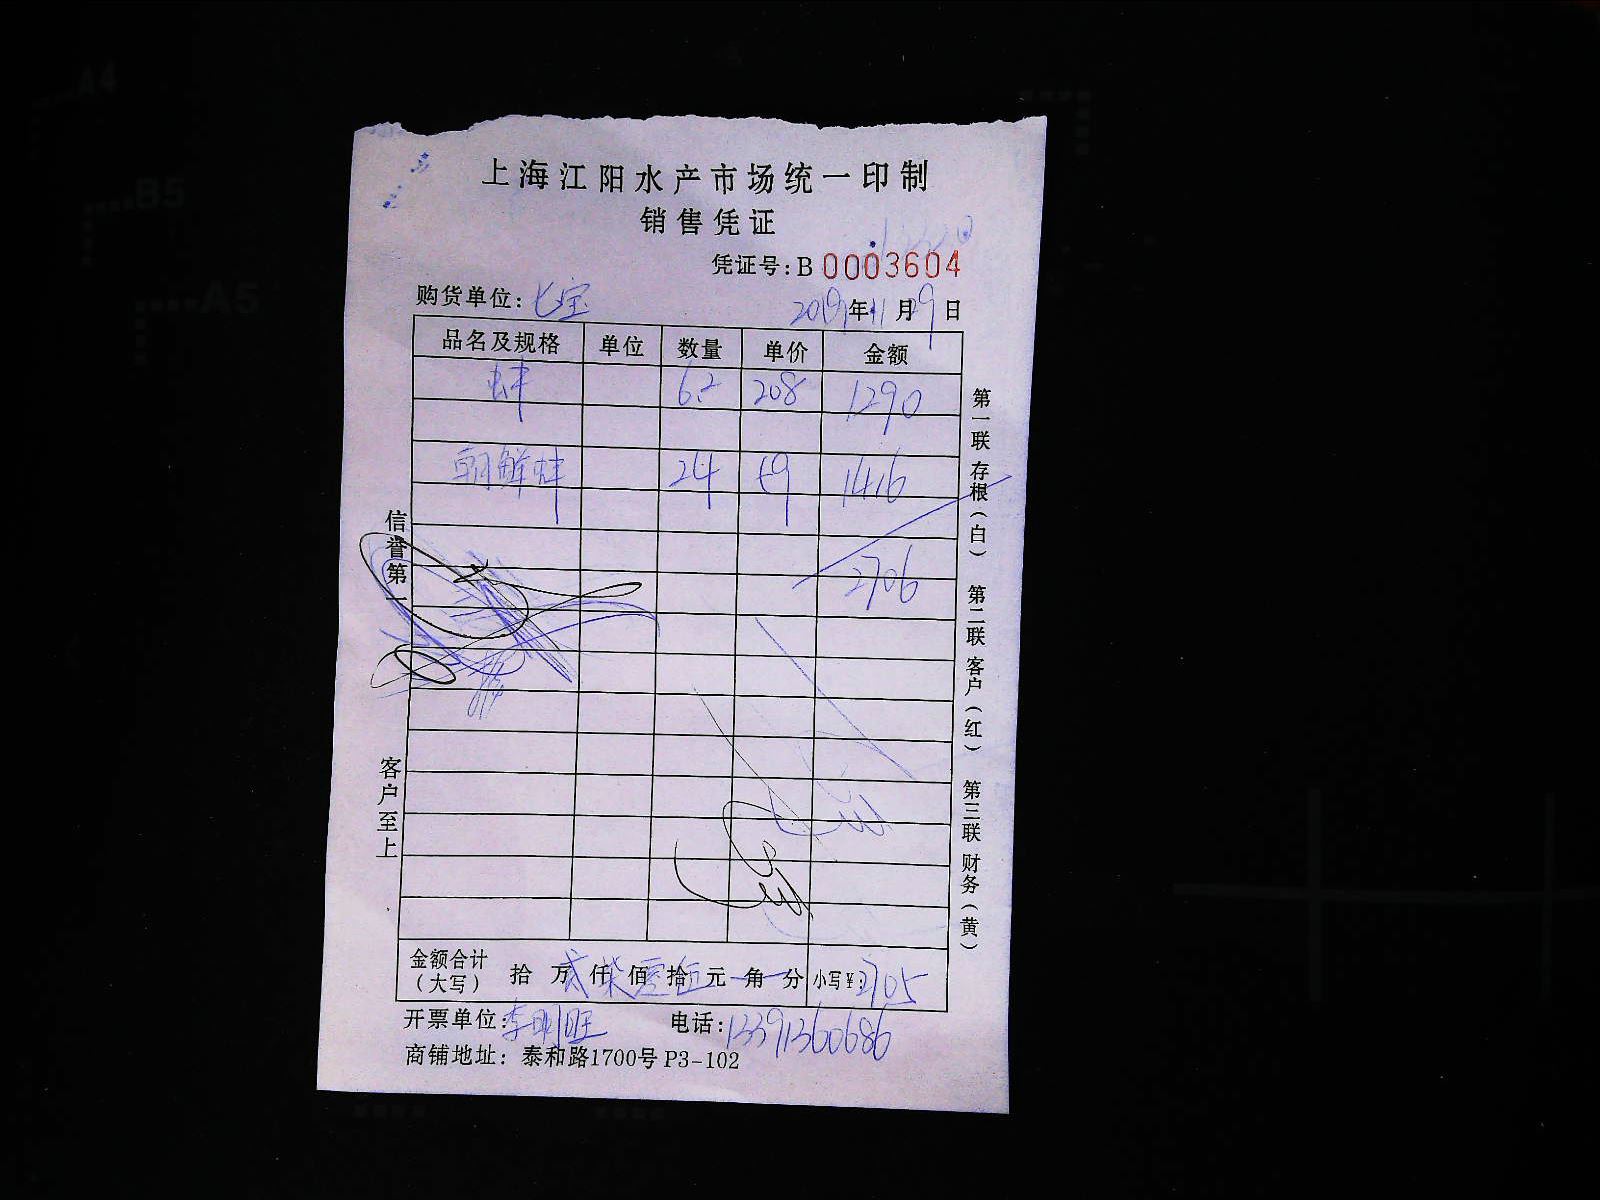 上海江阳水产市场统一印制
销售凭证
凭证号: B 0003604
购货单位: 七宝 2019年11月09日
品名及规格 单位 数量 单价 金额
蚌 6.2 208 1290
朝鲜蚌 24 59 1416
2706
金额合计(大写) 拾 万 贰 仟 柒 佰 零 拾 伍 元 角 分 小写¥: 2705
开票单位: 李明旺 电话: 13391360686
商铺地址: 泰和路1700号 P3-102
信誉第一
客户至上
第一联 存根(白) 第二联 客户(红) 第三联 财务(黄)